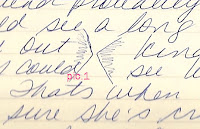 probably
see a long
out king
could see w
pg 1
Thats when
sure she's cr